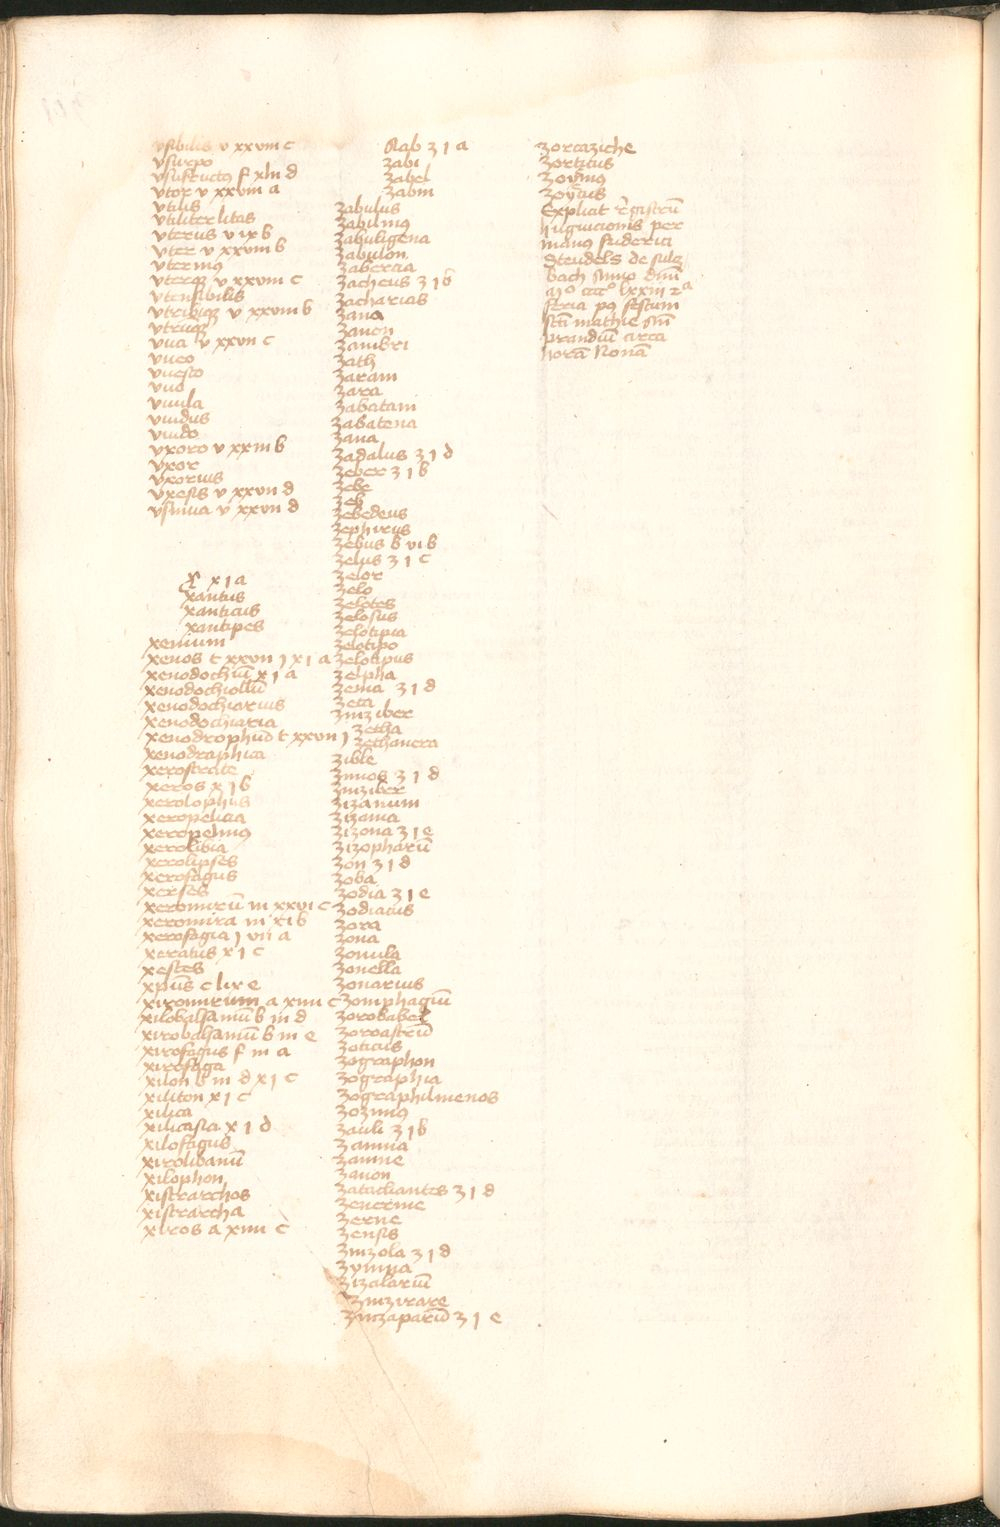 vsibilis v xxvııı c
vsurpo
vsufructꝯ f xlıı d
vtor v xxvııı a
vtilis
vtiliter litas
vterus v ıx b
vter v xxvııı b
vterinꝯ
vterqꝫ v xxvııı c
vtensibilis
vtrobiqꝫ v xxvııı b
vtruqꝫ
vua v xxvıı c
vueo
vuesco
vuo
vuula
vuidus
vuido
vxoro v xxııı b
vxor
vxorius
vxesis v xxvıı d
vsiuua v xxvıı d
X x ı a
xantus
xanticus
xantipes
xenium
xenos t xxvıı j x ı a
xenodochiū x ı a
xenodochiolū
xenodochiarius
xenodochiaria
xenodrophiū t xxvıı j
xenodraphica
xerostrate
xeros x ı b
xerolophus
xeropelicia
xeropelinꝯ
xerolibia
xerolipses
xerofagus
xerses
xeromirū m xxvı c
xeromira m xı b
xerofagia j vıı a
xeratus x ı c
xestes
xp̄us c lıx e
xiromirum a xıııı c
xilobalsamū b ııı d
xirobalsamū b ııı e
xirofagus f ııı a
xirofaga
xilon b ııı d x ı c
xiliton x ı c
xilica
xilicasia x ı d
xilofagus
xirolibanū
xilophon
xistrarchos
xistrarcha
xiros a xıııı c
Rab ʒ ı a
zabi
zabel
zabin
zabulus
zabilinꝯ
zabuligena
zabulon
zabercia
zacheus ʒ ı b
zacharias
zana
zanen
zambri
zath
zaram
zara
zabatam
zabatena
zana
zadalus ʒ ı d
zeber ʒ ı b
zebe
zeb
zebedeus
zephirus
zebus b vı b
zelus ʒ ı c
zelor
zelo
zelotes
zelosus
zelotipia
zelotipo
zelotipus
zelpha
zema ʒ ı d
zeta
zinziber
zetha
zethanera
zible
zinios ʒ ı d
zinziber
zizanium
zizania
zizona ʒ ı e
zizopharū
zon ʒ ı d
zoba
zodia ʒ ı e
zodiacus
zora
zona
zonula
zonella
zonarius
zomphagiū
zorobabel
zoroastrū
zoticus
zographon
zographia
zographilmenos
zozimꝯ
zauli ʒ ı b
zamna
zamne
zanon
zatachantes ʒ ı d
zenerine
zerne
zensis
zinzola ʒ ı d
zymna
zizalariū
zinzirare
zinzaparū ʒ ı e
zorcaziche
zorticus
zoymꝯ
zoycus
Explicit r̄gistrū
huguicionis per
manꝯ friderici
Steudels de sulcz
bach Anno dm̄i
Mº ccccº lxxııı 2ª
feria pꝯ festum
sc̄ti mathie an̄
prandiū circa
horā Nonā